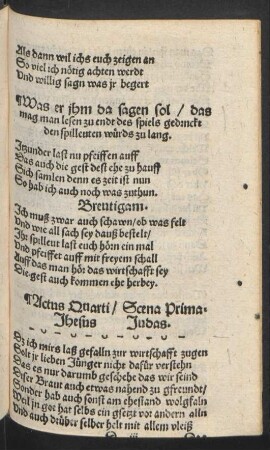 Als dann wil ichs euch zeigen an
So viel ich nötig achten werdt
Und willig sagn was jr begert
¶Was er jhm da sagen sol / das
mag man lesen zu endt des spiels gedruckt
den spilleuten würds zu lang.
Itzunder last nu pfeiffen auff
Das auch die gest dest ehe zu hauff
Sich samlen denn es zeit ist nun
So hab ich auch noch was zuthun.
Breutigam.
Ich muß zwar auch schawn / ob was felt
Und wie all sach sey dauß bestelt /
Ihr spilleut last euch hörn ein mal
Und pfeiffet auff mit freyem schall
Auff das man hör das wirtschafft sey
Die gest auch kommen ehe herbey.
¶Actus Quarti / Scena Prima.
Jhesus Judas.
Ich mirs laß gefalln zur wirtschafft zugen
Solt jr lieben Jünger nicht dafür verstehn
Das es nur darumb geschehe das wir seind
Diser Braut auch etwas nahend zu gfreundt /
Sonder hab auch sonst am ehestand wolgfaln
Weil jn got hat selbs ein gsetzt vor andern alln
Und auch drüber selber helt mit allem vleiß